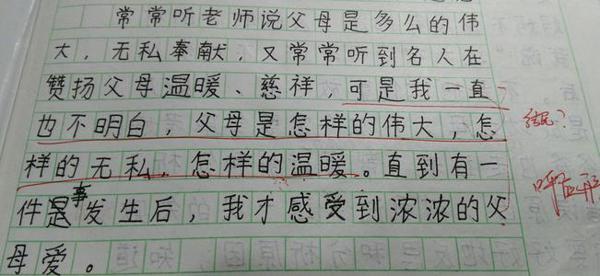 常常听老师说父母是多么的伟
大，无私奉献，又常常听到名人在
赞扬父母温暖、慈祥，可是我一直
也不明白，父母是怎样的伟大，怎
样的无私，怎样的温暖。直到有一
件事发生后，我才感受到浓浓的父
母爱。
呼应